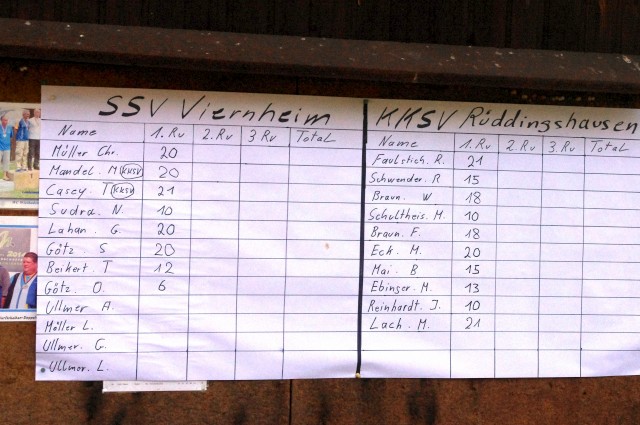 SSV Viernheim
Name 1. Rv 2. Rv 3 Rv Total
Müller Chr. 20
Mandel. M (KKSV) 20
Casey. T (KKSV) 21
Sudra. N. 10
Lahan. G. 20
Götz. S 20
Beikert. T 12
Götz. O. 6
Ullmer A.
Möller L.
Ullmer. G.
Ullmer. L.
KKSV Rüddingshausen
Name 1. Rv 2. Rv 3. Rv Total
Faulstich. R. 21
Schwender. R 15
Braun. W 18
Schultheis. M. 10
Braun. F. 18
Eck. M. 20
Mai. B 15
Ebinger. M. 13
Reinhardt. J. 10
Lach. M. 21